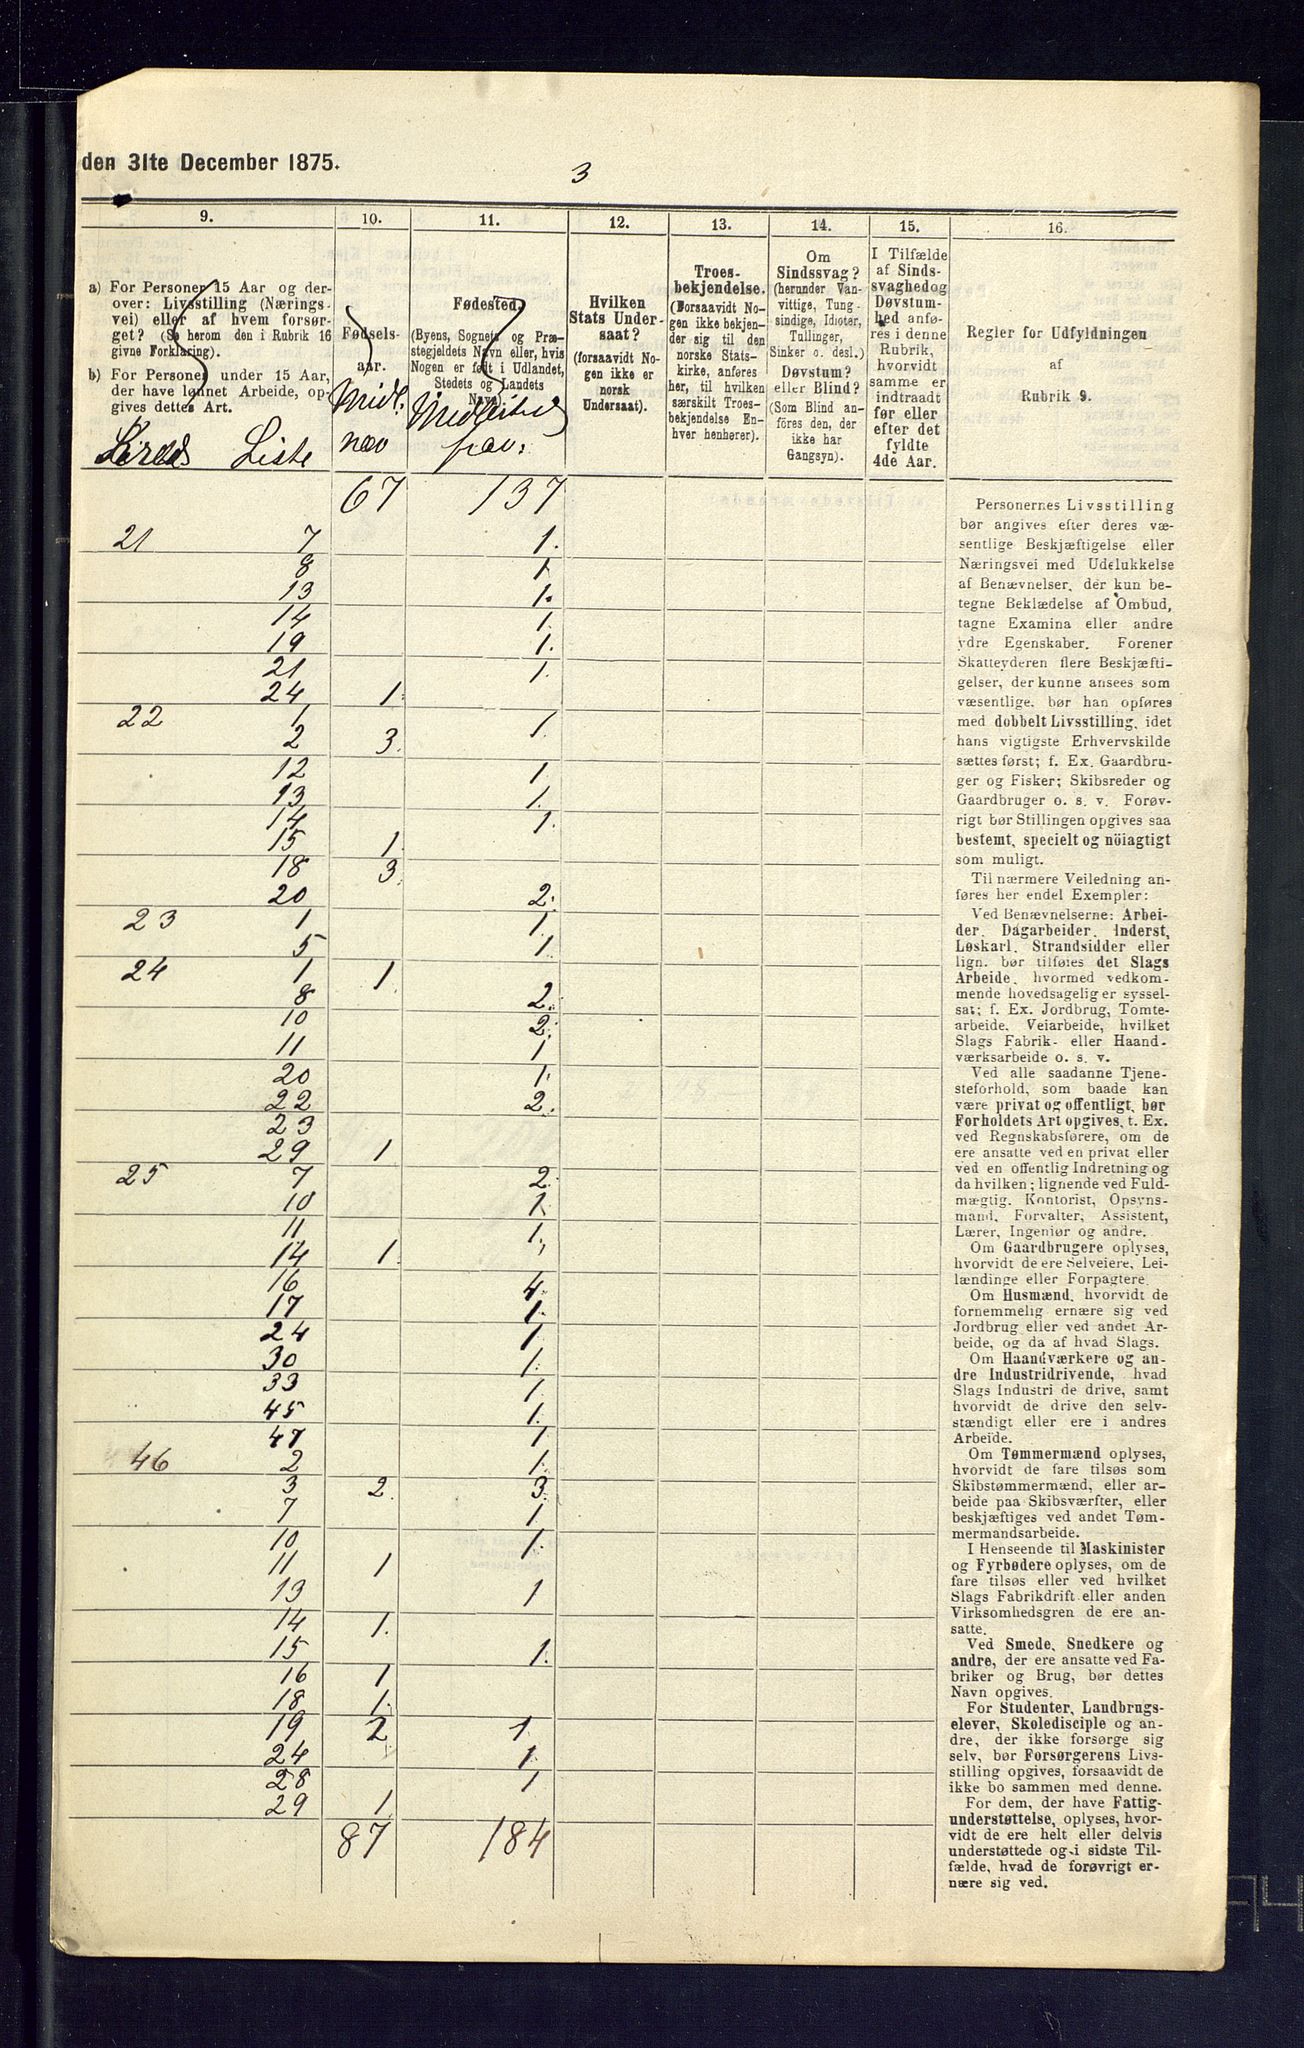 den 31te December 1875.
3
9.
a) For Personer 15 Aar og der-
over: Livsstilling (Nærings-
vei) eller af hvem forsør-
get? (Se herom den i Rubrik 16
givne Forklaring).
b) For Personer under 15 Aar,
der have lønnet Arbeide, op-
gives dettes Art.
Kreds Liste
10.
Fødsels-
aar.
Midl.
nær
11.
Fødested.
(Byens, Sognets og Præ-
stegjeldets Navn eller, hvis
Nogen er født i Udlandet,
Stedets og Landets
Navn).
Midlertid
fræv:
12.
Hvilken
Stats Under-
saat?
(forsaavidt No-
gen ikke er
norsk
Undersaat).
13.
Troes-
bekjendelse.
(Forsaavidt No-
gen ikke bekjen-
der sig til den
norske Stats-
kirke, anføres
her, til hvilken
særskilt Troes-
bekjendelse En-
hver henhører).
14.
Om
Sindssvag?
(herunder Van-
vittige, Tung-
sindige, Idioter,
Tullinger,
Sinker o. desl.)
Døvstum?
eller Blind?
(Som Blind an-
føres den, der
ikke har
Gangsyn).
15.
I Tilfælde
af Sinds-
svaghed og
Døvstum-
hed anfø-
res i denne
Rubrik,
hvorvidt
samme er
indtraadt
før eller
efter det
fyldte
4de Aar.
16.
Regler for Udfyldningen
af
Rubrik 9.
67 137
21 7 1.
8 1
13 1.
14 1.
19 1.
21 1.
24 1.
22 1 1.
2 3.
12 1.
13 1.
14 1.
15 1.
18 3.
20 2.
23 1 1.
5 1
24 1 1.
8 2.
10 2.
11 1
20 1.
22 2.
23
29 1
25 7 2.
10 1.
11 1.
14 1.
16 4.
17 1.
24 1
30 1.
33 1
45 1.
47 1
46 2 1.
3 2. 3.
7 1
10 1.
11 1
13 1
14 1.
15 1.
16 1
18 1.
19 2 1.
24 1.
28 1
29 1
87 184
Personernes Livsstilling
bør angives efter deres væ-
sentlige Beskjæftigelse eller
Næringsvei med Udelukkelse
af Benævnelser, der kun be-
tegne Beklædelse af Ombud,
tagne Examina eller andre
ydre Egenskaber. Forener
Skatteyderen flere Beskjæfti-
gelser, der kunne ansees som
væsentlige, bør han opføres
med dobbelt Livsstilling, idet
hans vigtigste Erhvervskilde
sættes først; f. Ex. Gaardbru-
ger og Fisker; Skibsreder og
Gaardbruger o. s. v. Forøv-
rigt bør Stillingen opgives saa
bestemt, specielt og nöiagtigt
som muligt.
Til nærmere Veiledning an-
føres her endel Exempler:
Ved Benævnelserne: Arbei-
der, Dagarbeider, Inderst,
Løskarl, Strandsidder eller
lign. bør tilføies det Slags
Arbeide, hvormed vedkom-
mende hovedsagelig er syssel-
sat; f. Ex. Jordbrug, Tomte-
arbeide, Veiarbeide, hvilket
Slags Fabrik- eller Haand-
værksarbeide o. s. v.
Ved alle saadanne Tjene-
steforhold, som baade kan
være privat og offentligt, bør
Forholdets Art opgives, t. Ex.
ved Regnskabsførere, om de
ere ansatte ved en privat eller
ved en offentlig Indretning og
da hvilken; lignende ved Fuld-
mægtig, Kontorist, Opsyns-
mand, Forvalter, Assistent,
Lærer, Ingeniør og andre.
Om Gaardbrugere oplyses,
hvorvidt de ere Selveiere, Lei-
lændinge eller Forpagtere.
Om Husmænd, hvorvidt de
fornemmelig ernære sig ved
Jordbrug eller ved andet Ar-
beide, og da af hvad Slags.
Om Haandværkere og an-
dre Industridrivende, hvad
Slags Industri de drive, samt
hvorvidt de drive den selv-
stændigt eller ere i andres
Arbeide.
Om Tømmermænd oplyses,
hvorvidt de fare tilsøs som
Skibstømmermænd, eller ar-
beide paa Skibsværfter, eller
beskjæftiges ved andet Tøm-
mermandsarbeide.
I Henseende til Maskinister
og Fyrbødere oplyses, om de
fare tilsøs eller ved hvilket
Slags Fabrikdrift eller anden
Virksomhedsgren de ere an-
satte.
Ved Smede, Snedkere og
andre, der ere ansatte ved Fa-
briker og Brug, bør dettes
Navn opgives.
For Studenter, Landbrugs-
elever, Skoledisciple og an-
dre, der ikke forsørge sig
selv, bør Forsørgerens Livs-
stilling opgives, forsaavidt de
ikke bo sammen med denne.
For dem, der have Fattig-
understøttelse, oplyses, hvor-
vidt de ere helt eller delvis
understøttede og i sidste Til-
fælde, hvad de forøvrigt er-
nære sig ved.